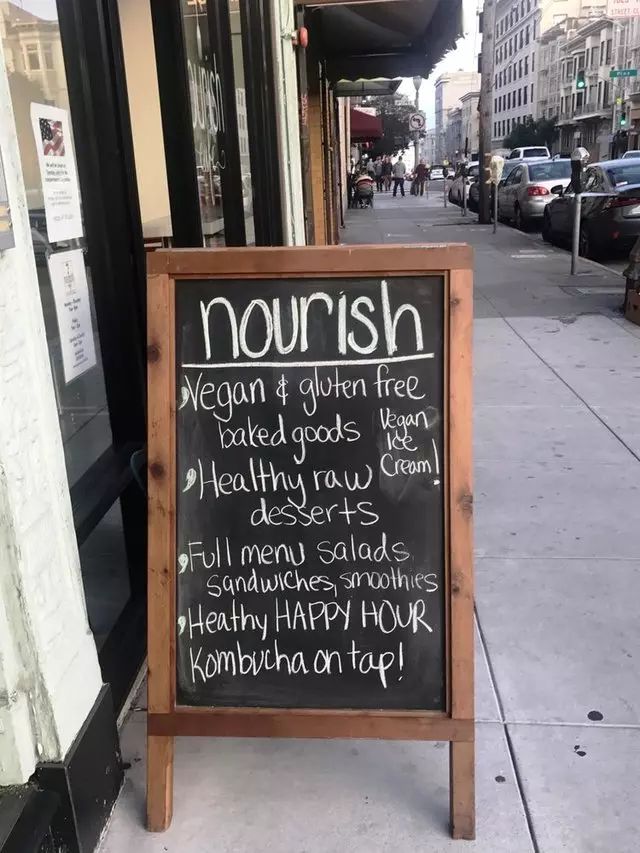 nourish
Vegan & gluten free
baked goods
Vegan
Ice
Cream!
Healthy raw
desserts
Full menu salads
sandwiches, smoothies
Heathy HAPPY HOUR
Kombucha on tap!